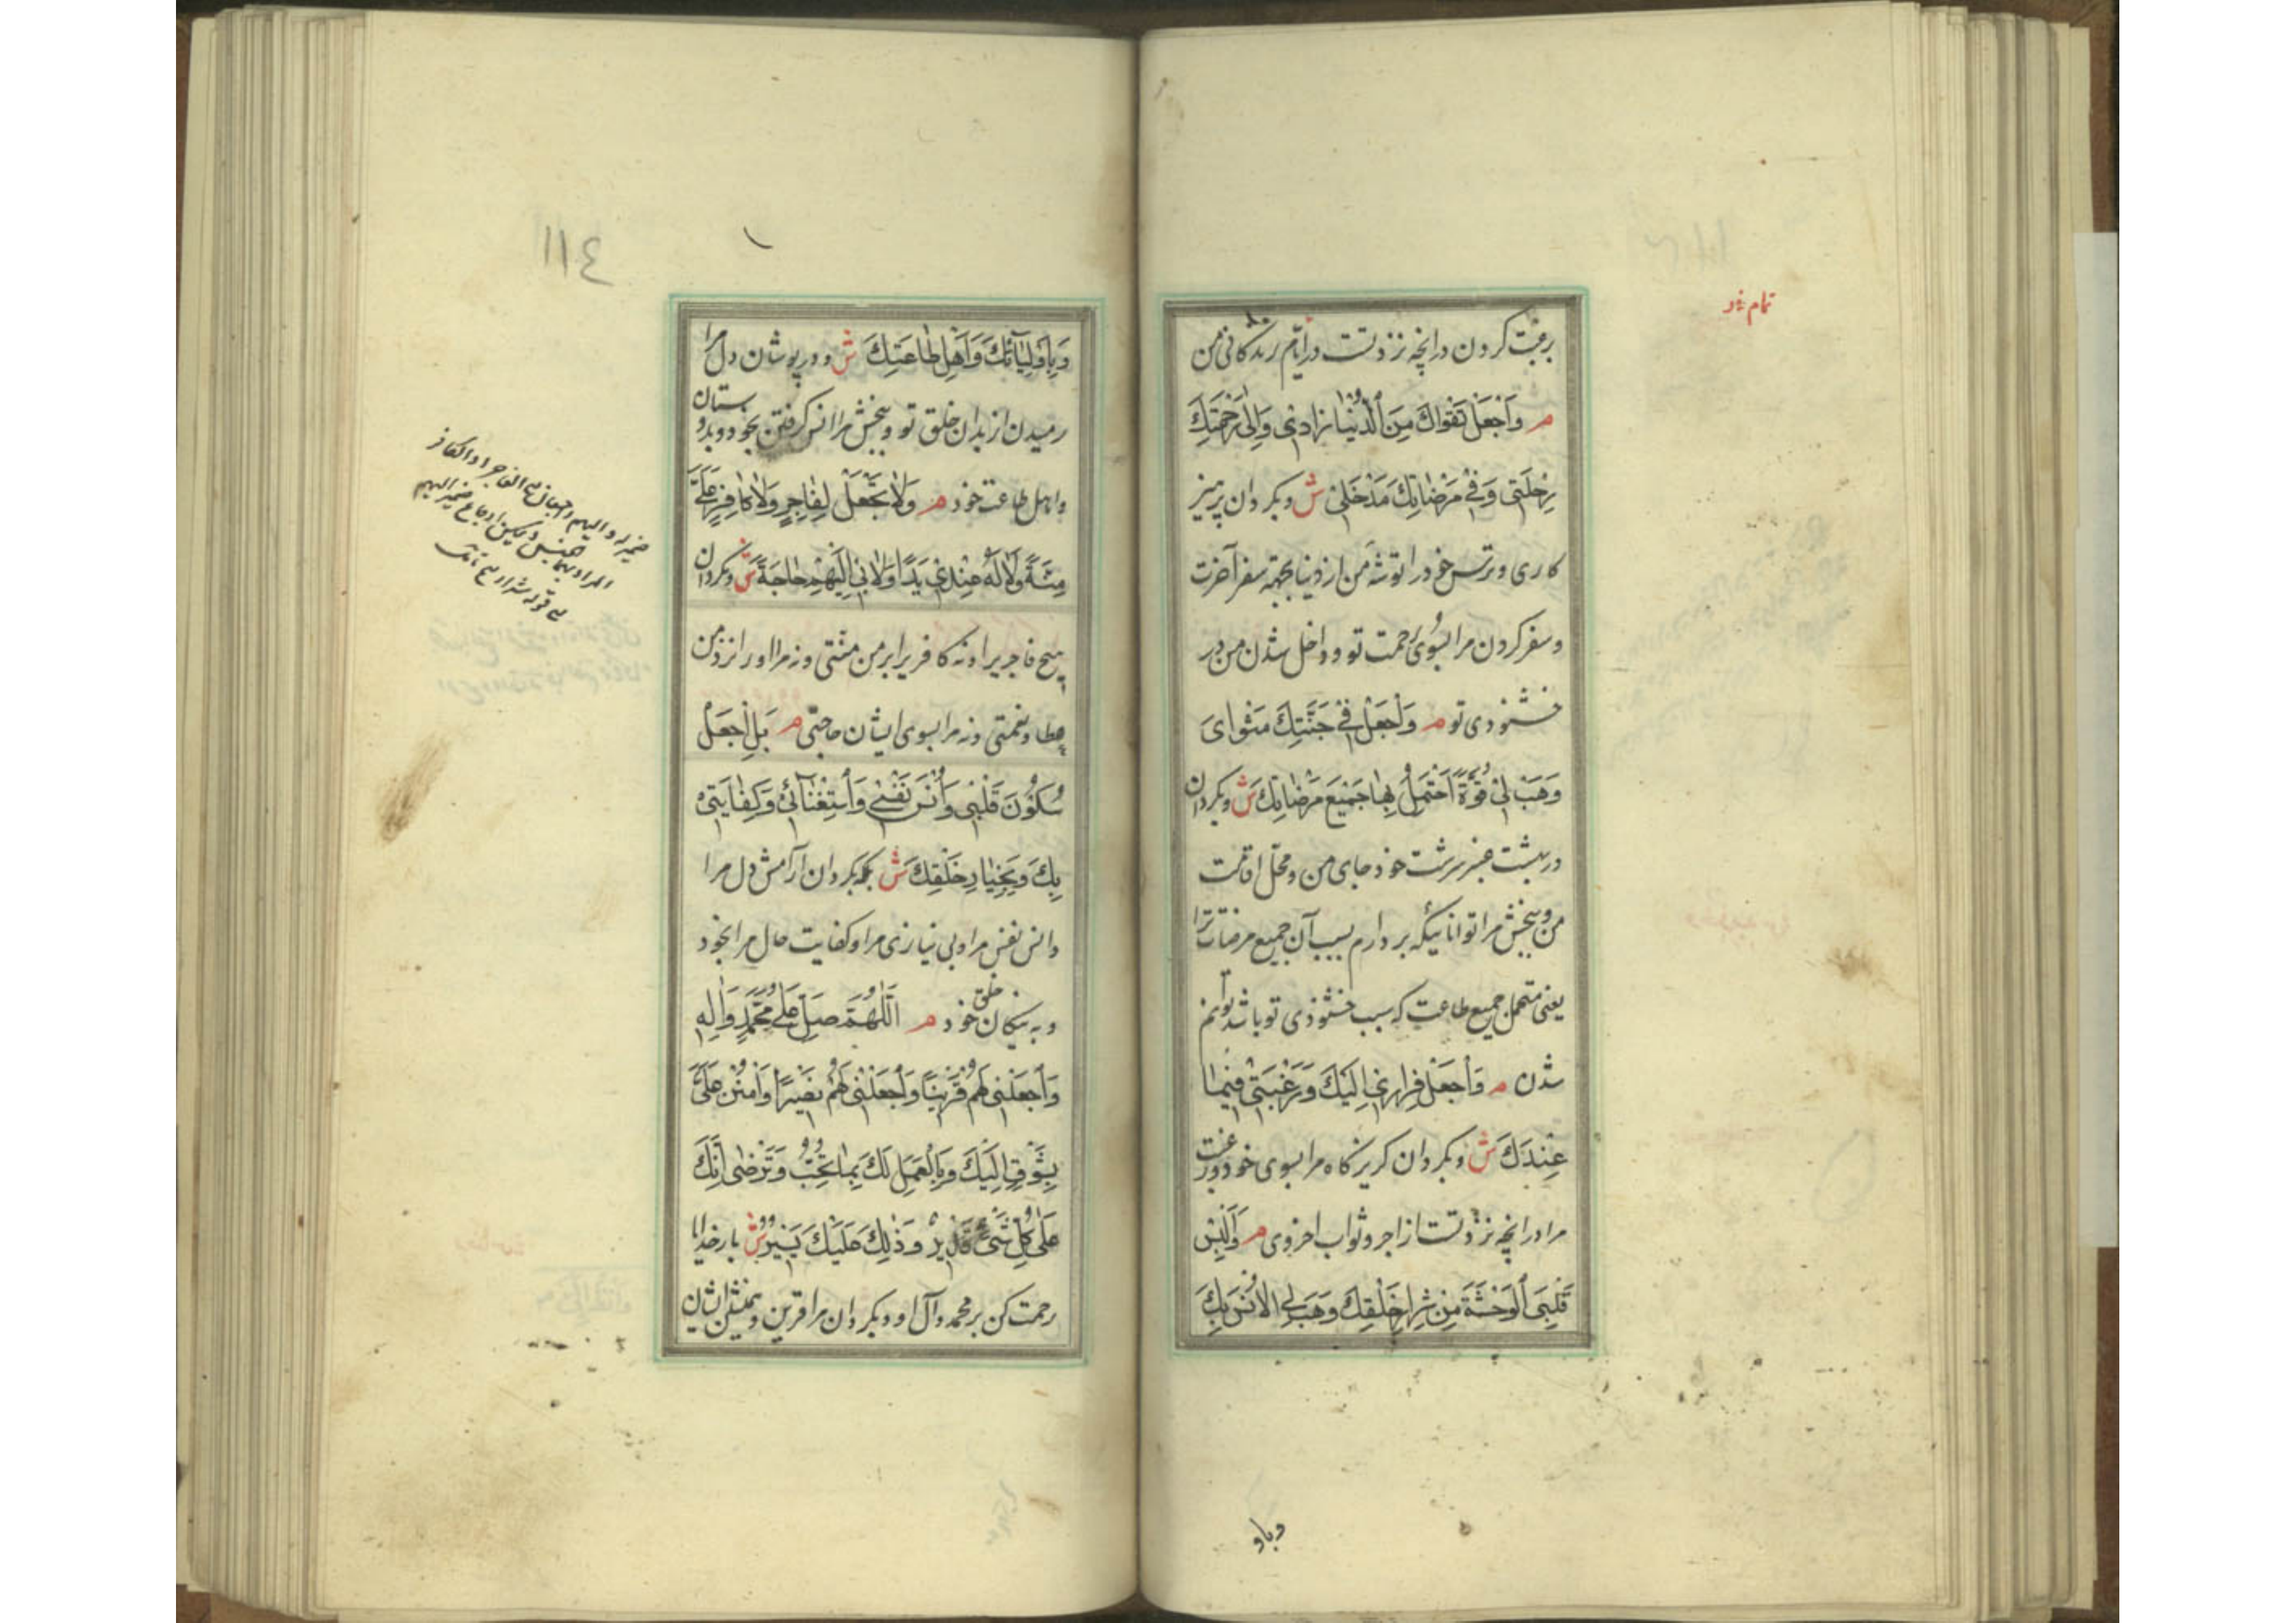 تمام شد
برغبت کردن در آنچه نزد تست در ایام زندگانی من
م وَاجْعَلْ تَقْوَاكَ مِنَ الدُّنْيَا زَادِي وَإِلَى رَحْمَتِكَ
رِحْلَتِي وَفِي مَرْضَاتِكَ مَدْخَلِي ش وبکردان پرهیز
کاری وترس خود را توشه من از دنیا بجهة سفر آخرت
وسفر کردن مرا بسوی رحمت تو وداخل شدن من در
خشنودی تو م وَاجْعَلْ فِي جَنَّتِكَ مَثْوَايَ
وَهَبْ لِي قُوَّةً أَحْتَمِلُ بِهَا جَمِيعَ مَرْضَاتِكَ ش وبکردان
در بهشت عنبر سرشت خود جای من ومحل اقامت
من وببخش مرا توانائیکه بردارم بسبب آن جمیع مرضات ترا
یعنی متحمل جمیع طاعت که سبب خشنودی تو باشد توانم
شدن م وَاجْعَلْ فِرَارِي إِلَيْكَ وَرَغْبَتِي فِيمَا
عِنْدَكَ ش وبکردان کریزگاه مرا بسوی خود ورغبت
مرا در آنچه نزد تست از اجر وثواب اخروی م وَأَلْبِسْ
قَلْبِيَ الْوَحْشَةَ مِنْ شِرَارِ خَلْقِكَ وَهَبْ لِيَ الْأُنْسَ بِكَ
وباو
١١٤
وَبِأَوْلِيَائِكَ وَأَهْلِ طَاعَتِكَ ش ودر پوشان دل مرا
رمیدن از بدان خلق تو وببخش مرا انس کرفتن بخود وبدوستان
واهل طاعت خود م وَلَا تَجْعَلْ لِفَاجِرٍ وَلَا كَافِرٍ عَلَيَّ
مِنَّةً وَلَا لَهُ عِنْدِي يَدًا وَلَا بِي إِلَيْهِمْ حَاجَةً ش ومکردان
هیچ فاجریرا ونه کافریرا بر من منتی ونه مر او را نزد من
عطا ونعمتی ونه مرا بسوی ایشان حاجتی م بَلِ اجْعَلْ
سُكُونَ قَلْبِي وَأُنْسَ نَفْسِي وَاسْتِغْنَائِي وَكِفَايَتِي
بِكَ وَبِخِيَارِ خَلْقِكَ ش بلکه بکردان آرامش دل مرا
وانس نفس مرا وبی نیازی مرا وکفایت حال مرا بخود
وبه نیکان خلق خود م اللَّهُمَّ صَلِّ عَلَى مُحَمَّدٍ وَآلِهِ
وَاجْعَلْنِي لَهُمْ قَرِينًا وَاجْعَلْنِي لَهُمْ نَصِيرًا وَامْنُنْ عَلَيَّ
بِشَوْقٍ إِلَيْكَ وَبِالْعَمَلِ لَكَ بِمَا تُحِبُّ وَتَرْضَى إِنَّكَ
عَلَى كُلِّ شَيْءٍ قَدِيرٌ وَذَلِكَ عَلَيْكَ يَسِيرٌ ش بار خدایا
رحمت کن بر محمد وآل او وبکردان مرا قرین وهمنشین ایشان